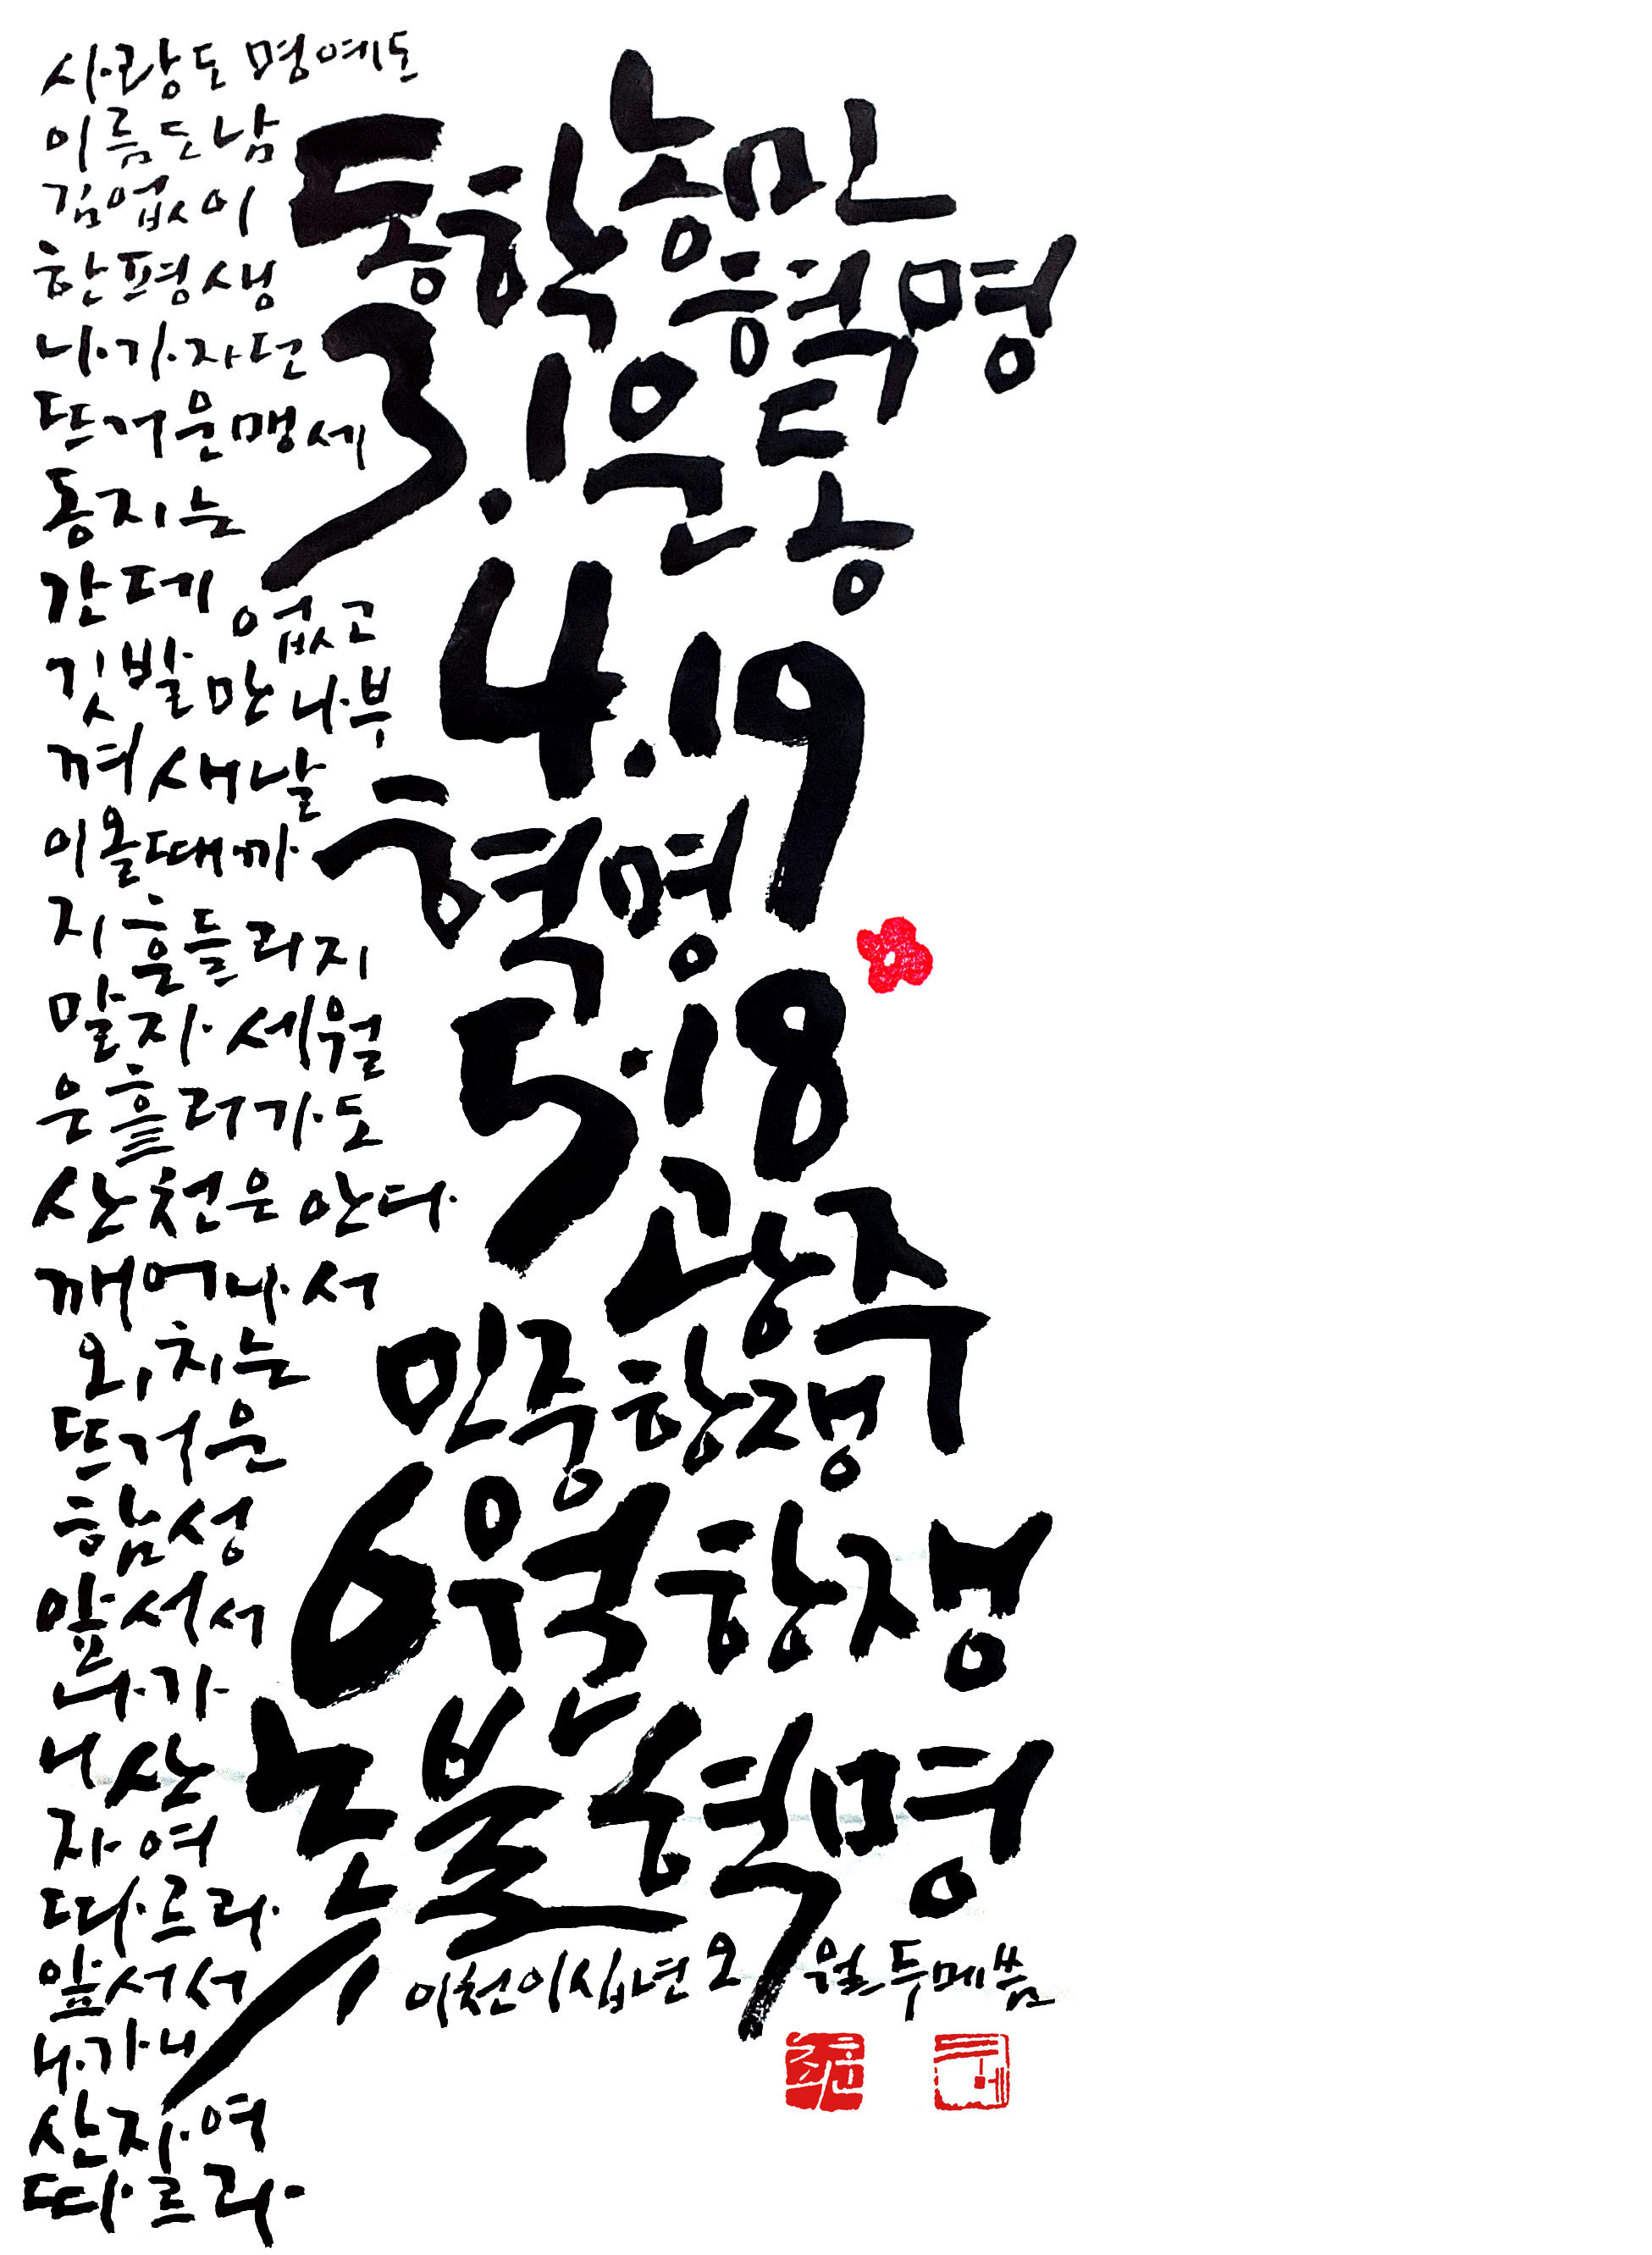 사랑도 명예도
이름도 남
김 없이
한 평생
나가자던
뜨거운 맹세
동지는
간데 없고
깃발만 나부
껴 새날
이 올 때까
지 흔들리지
말자 세월
은 흘러가도
산천은 안다
깨어나서
외치는
뜨거운
함성
앞서서
나가
니 산
자여
따르라
앞서서
나가니
산 자여
따르라
동학농민
혁명
3.1 운동
4.19
혁명
5.18
광주
민중항쟁
6월항쟁
촛불혁명
이천이십년 오월 두메 씀
두메